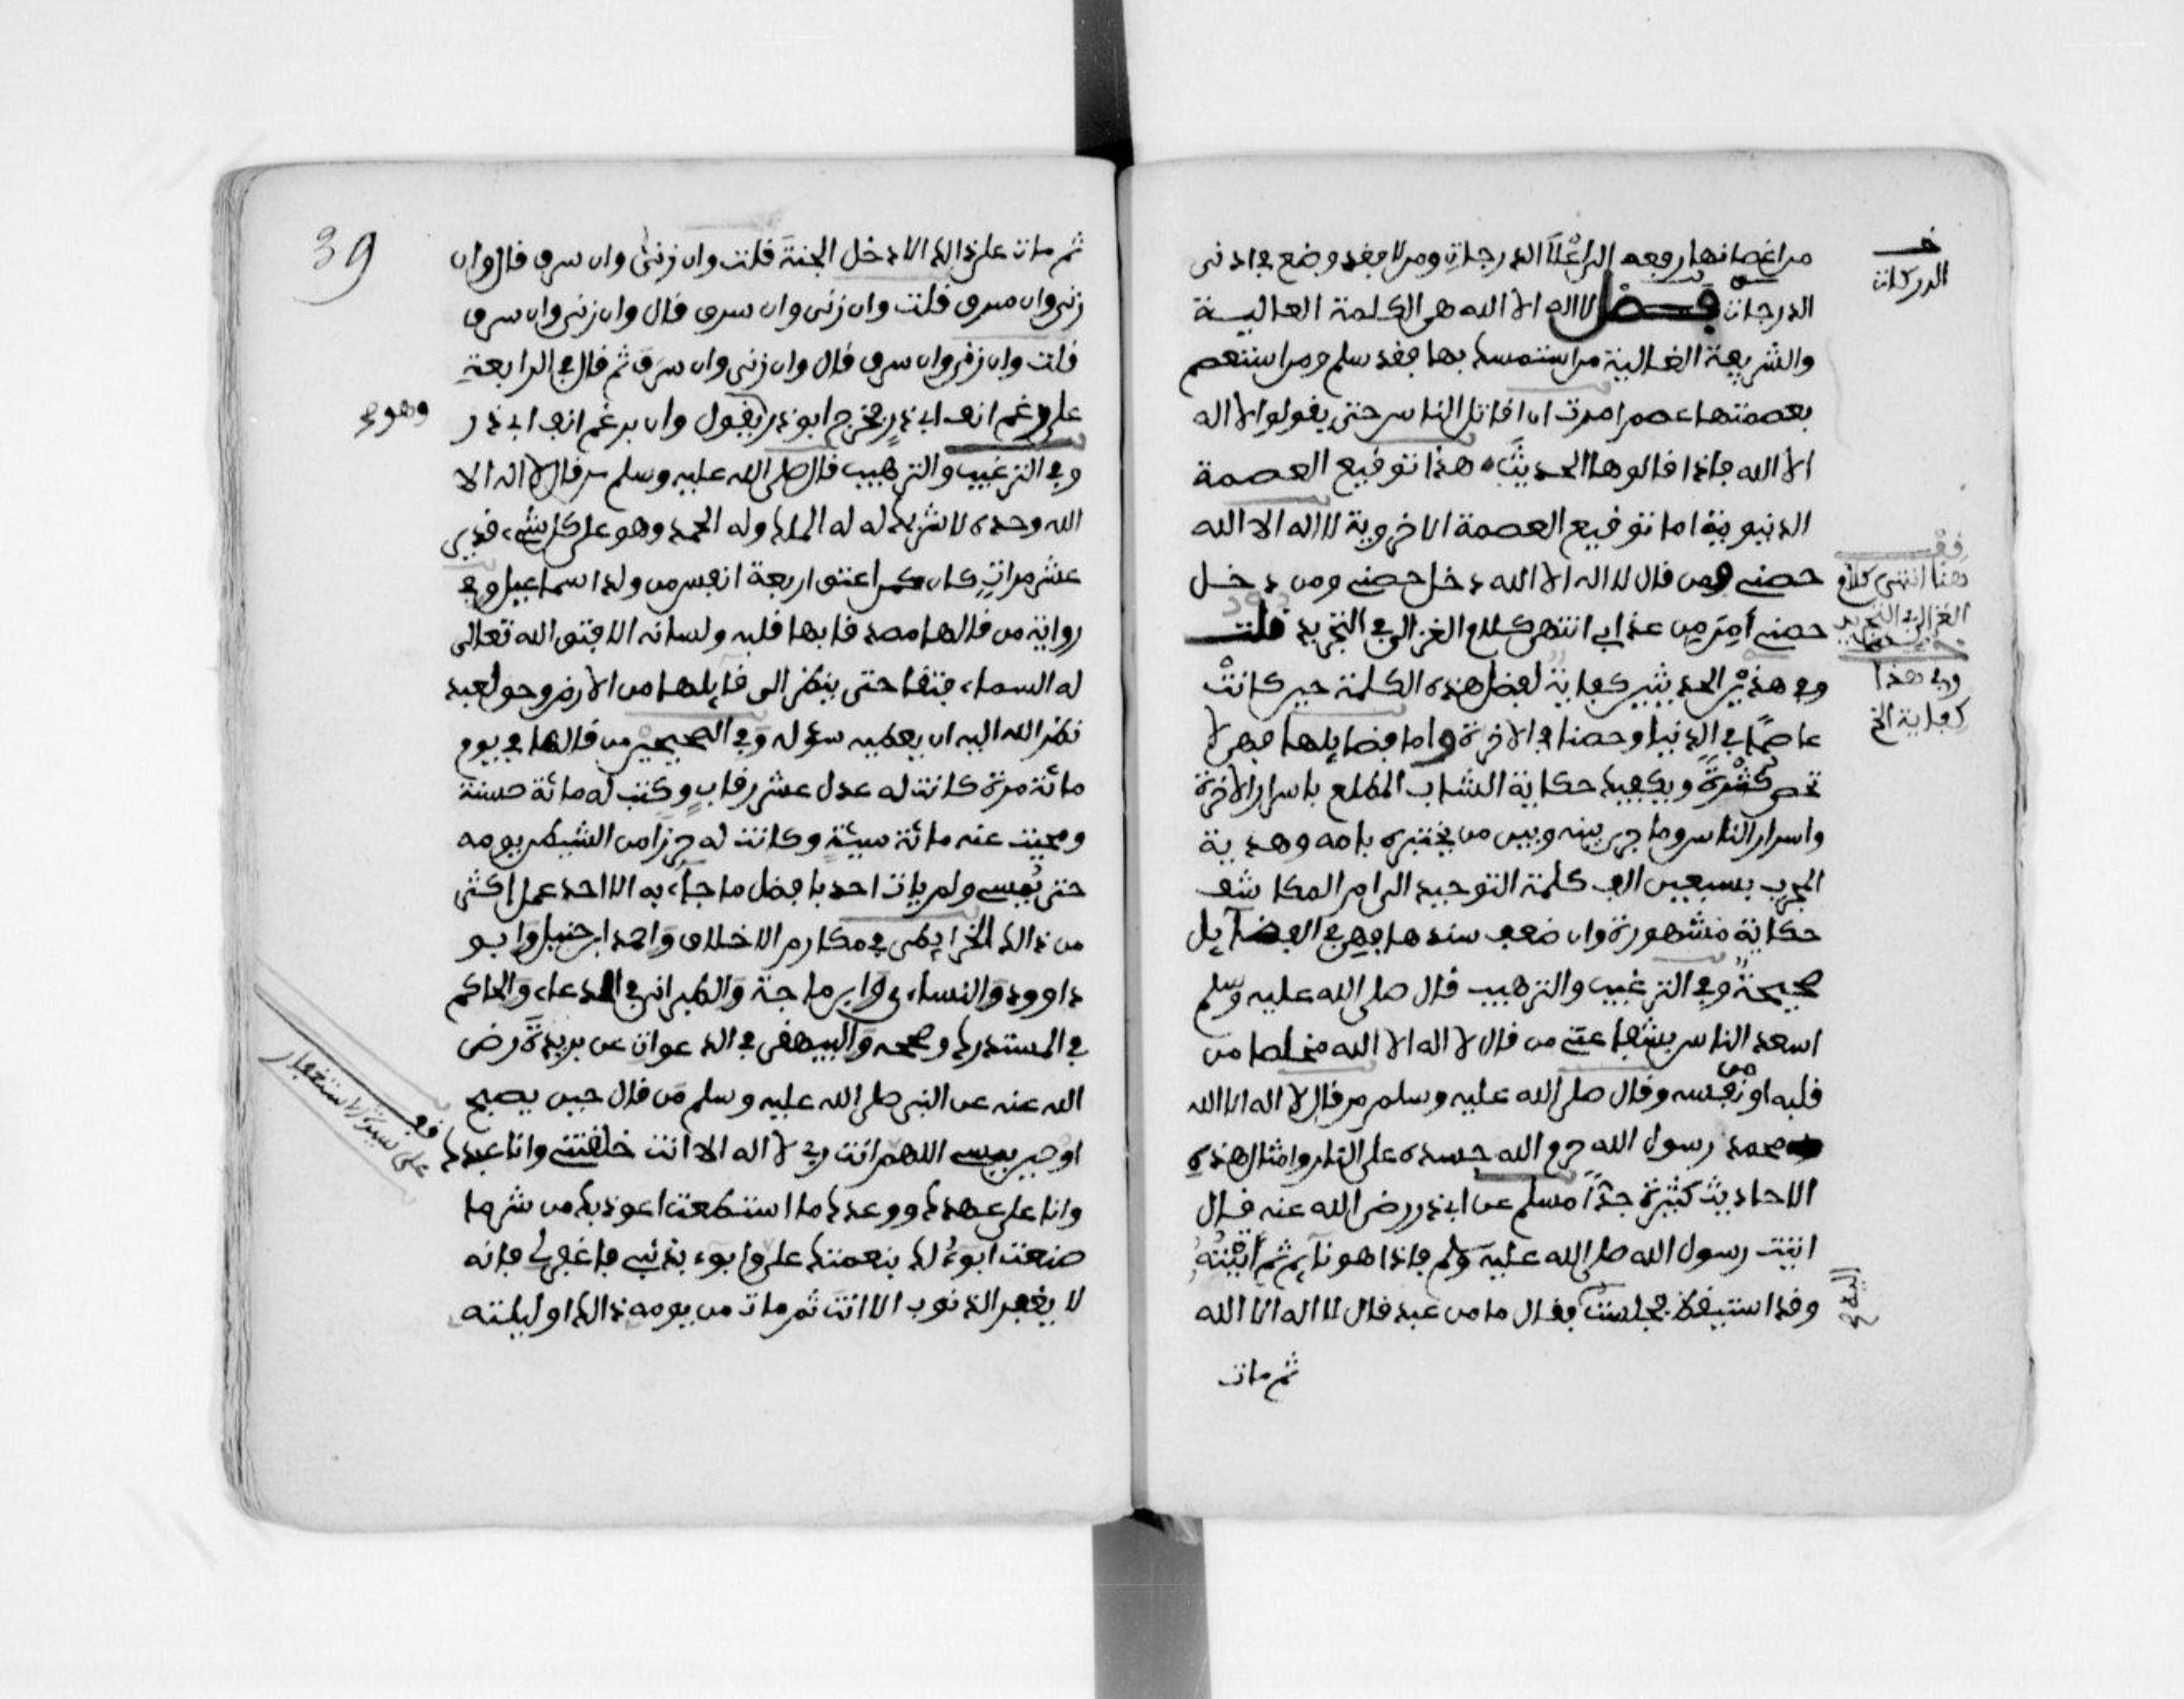 من اغصانها رفعه الى اعلا الدرجات ومن لا فقد وضع في ادنى
الدرجات فصل لا اله الا الله هي الكلمة العالية
والشريعة الغالية من استمسك بها فقد سلم ومن استعصم
بعصمتها عصم امرت ان اقاتل الناس حتى يقولوا لا اله
الا الله فاذا قالوها الحديث هذا توقيع العصمة
الدنيوية اما توقيع العصمة الاخروية لا اله الا الله
حصني ومن قال لا اله الا الله دخل حصني ومن دخل
حصني أمن من عذابي انتهى كلام الغزالي في التجريد قلت
وفي هذين الحديثين كفاية لفضل هذه الكلمة حين كانت
عاصما في الدنيا وحصنا في الاخرة واما فضايلها فهي لا
تحصى كثرة ويكفيك حكاية الشاب المطلع باسرار الاخرة
واسرار الناس وما جرى بينه وبين من يختبره بامه وهدية
المجرب بسبعين الف كلمة التوحيد الى ام المكاشف
حكاية مشهورة وان ضعف سندها فهي في الفضايل
صحيحة وفي الترغيب والترهيب قال صلى الله عليه وسلم
اسعد الناس بشفاعتي من قال لا اله الا الله مخلصا من
قلبه او من نفسه وقال صلى الله عليه وسلم من قال لا اله الا الله
محمد رسول الله حرم الله جسده على النار وامثال هذه
الاحاديث كثيرة جدّاً مسلم عن ابي ذر رضي الله عنه قال
اتيت رسول الله صلى الله عليه وسلم فاذا هو نايم ثم أتيته
وقد استيقظ فجلست فقال ما من عبد قال لا اله الا الله
ثم مات
الدركات
هنا انتهى كلام
الغزالي في التجريد
وفي هذا
كفاية الخ
اليه
39
ثم مات على ذالك الا دخل الجنة قلت وان زنى وان سرق قال وان
زنى وان سرق قلت وان زنى وان سرق قال وان زنى وان سرق
قلت وان زنى وان سرق قال وان زنى وان سرق ثم قال في الرابعة
على رغم انف ابي ذر فخرج ابو ذر يقول وان برغم انف ابي ذر
وفي الترغيب والترهيب قال صلى الله عليه وسلم من قال لا اله الا
الله وحده لا شريك له له الملك وله الحمد وهو على كل شيء قدير
عشر مرات كان كمن اعتق اربعة انفس من ولد اسماعيل وفي
رواية من قالها مصدقا بها قلبه ولسانه الا فتق الله تعالى
له السماء فتقا حتى ينظر الى قايلها من الارض وحق لعبد
نظر الله اليه ان يعطيه سؤله وفي الصحيحين من قالها في يوم
مائة مرة كانت له عدل عشر رقاب وكتب له مائة حسنة
ومحيت عنه مائة سيئة وكانت له حرزا من الشيطان يومه
حتى يمسي ولم يات احد بافضل ما جاء به الا احد عمل اكثر
من ذالك الخرايطي في مكارم الاخلاق واحمد ابن حنبل وابو
داوود والنساءي وابن ماجة والطبراني في الدعاء والحاكم
في المستدرك وصححه والبيهقي في الدعوات عن بريدة رضي
الله عنه عن النبي صلى الله عليه وسلم من قال حين يصبح
او حين يمسي اللهم انت ربي لا اله الا انت خلقتني وانا عبدك
وانا على عهدك ووعدك ما استطعت اعوذ بك من شر ما
صنعت ابوء لك بنعمتك علي وابوء بذنبي فاغفر لي فانه
لا يغفر الذنوب الا انت ثم مات من يومه ذالك او ليلته
قف
على سيد الاستغفار